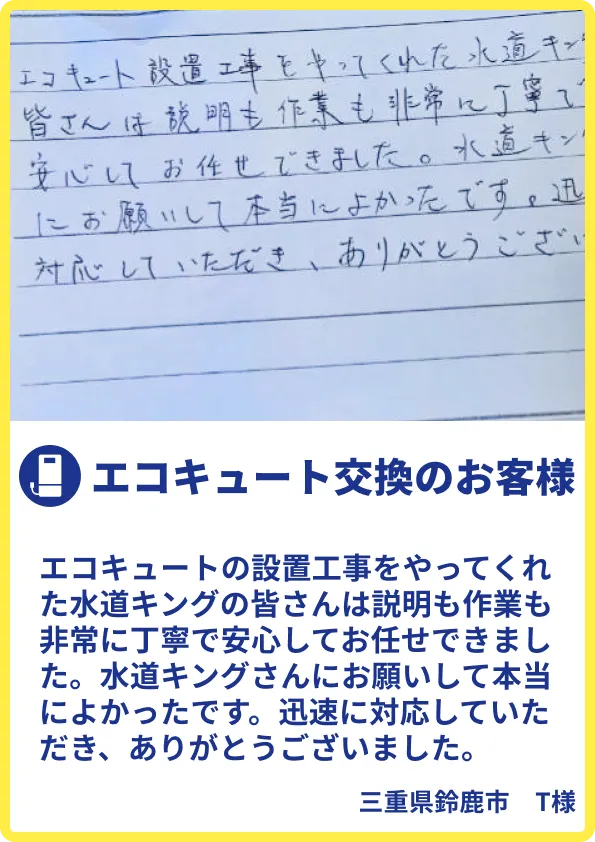 エコキュート設置工事をやってくれた水道キン
皆さんは説明も作業も非常に丁寧で
安心してお任せできました。水道キン
にお願いして本当によかったです。迅
対応していただき、ありがとうござい
エコキュート交換のお客様
エコキュートの設置工事をやってくれ
た水道キングの皆さんは説明も作業も
非常に丁寧で安心してお任せできまし
た。水道キングさんにお願いして本当
によかったです。迅速に対応していた
だき、ありがとうございました。
三重県鈴鹿市 T様